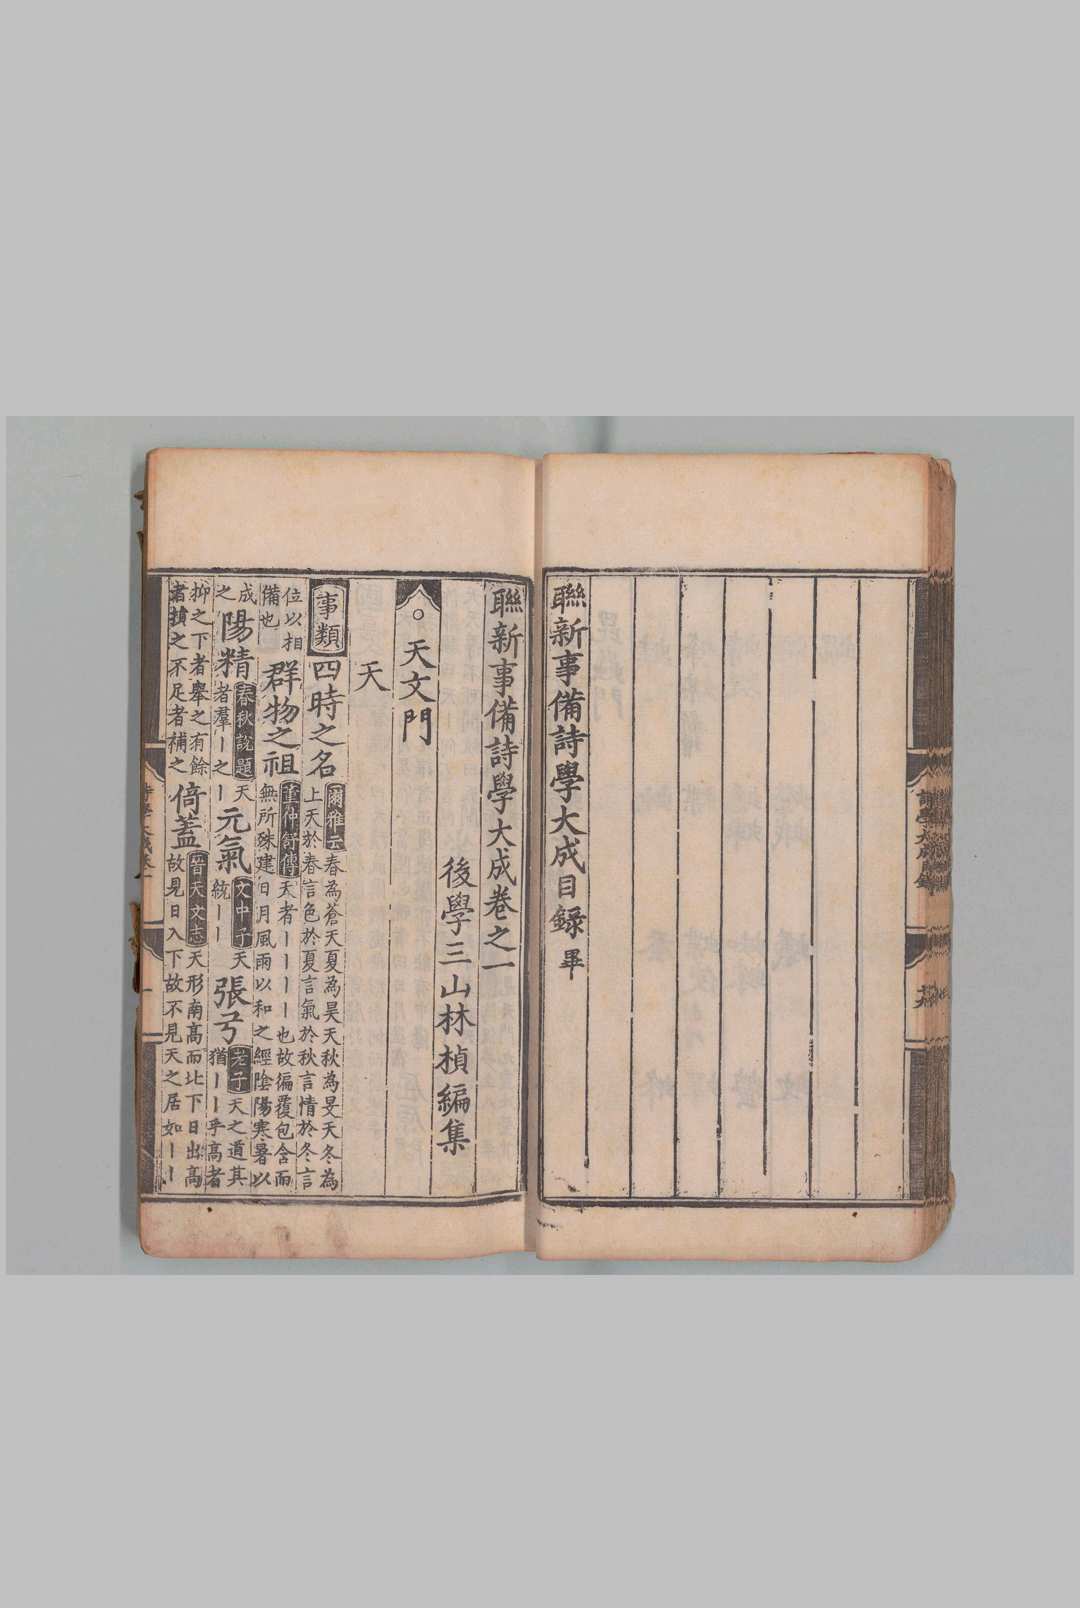 聯新事備詩學大成目録畢
聯新事備詩學大成卷之一
後學三山林楨編集
。天文門
天
事類 四時之名 爾雅云春為蒼天夏為昊天秋為旻天冬為上天於春言色於夏言氣於秋言情於冬言
位以相備也 群物之祖 董仲舒傳天者丨丨丨丨也故徧覆包含而無所殊建日月風雨以和之經陰陽寒暑以
成之 陽精 春秋說題天者羣丨之丨 元氣 文中子天統丨丨 張弓 老子天之道其猶丨丨乎高者
抑之下者舉之有餘者損之不足者補之 倚蓋 晉天文志天形南高而北下日出高故見日入下故不見天之居如丨丨